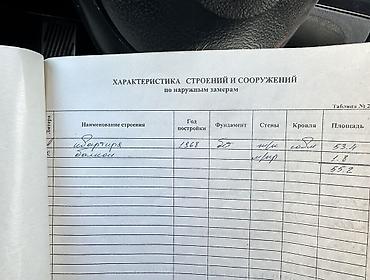 ХАРАКТЕРИСТИКА СТРОЕНИЙ И СООРУЖЕНИЙ
по наружным замерам
Таблица № 2
Литера Наименование строения Год постройки Фундамент Стены Кровля Площадь
квартира 1968 53.4
балкон 1.8
55.2